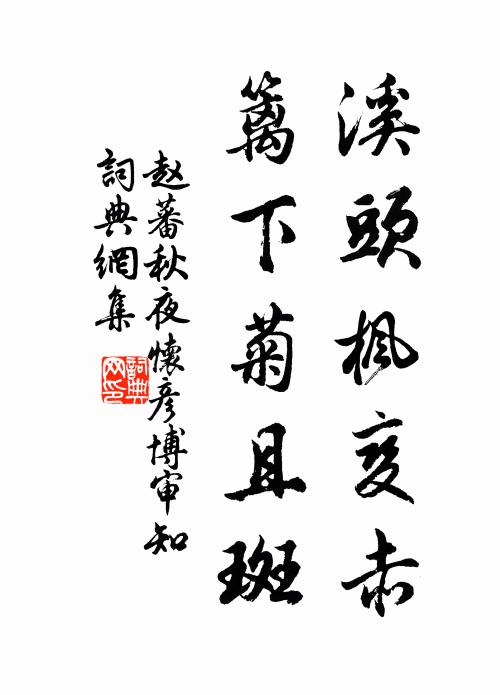 溪頭楓变赤
籬下菊且斑
赵蕃秋夜懷彥博审知
詞典網集
詞典網印